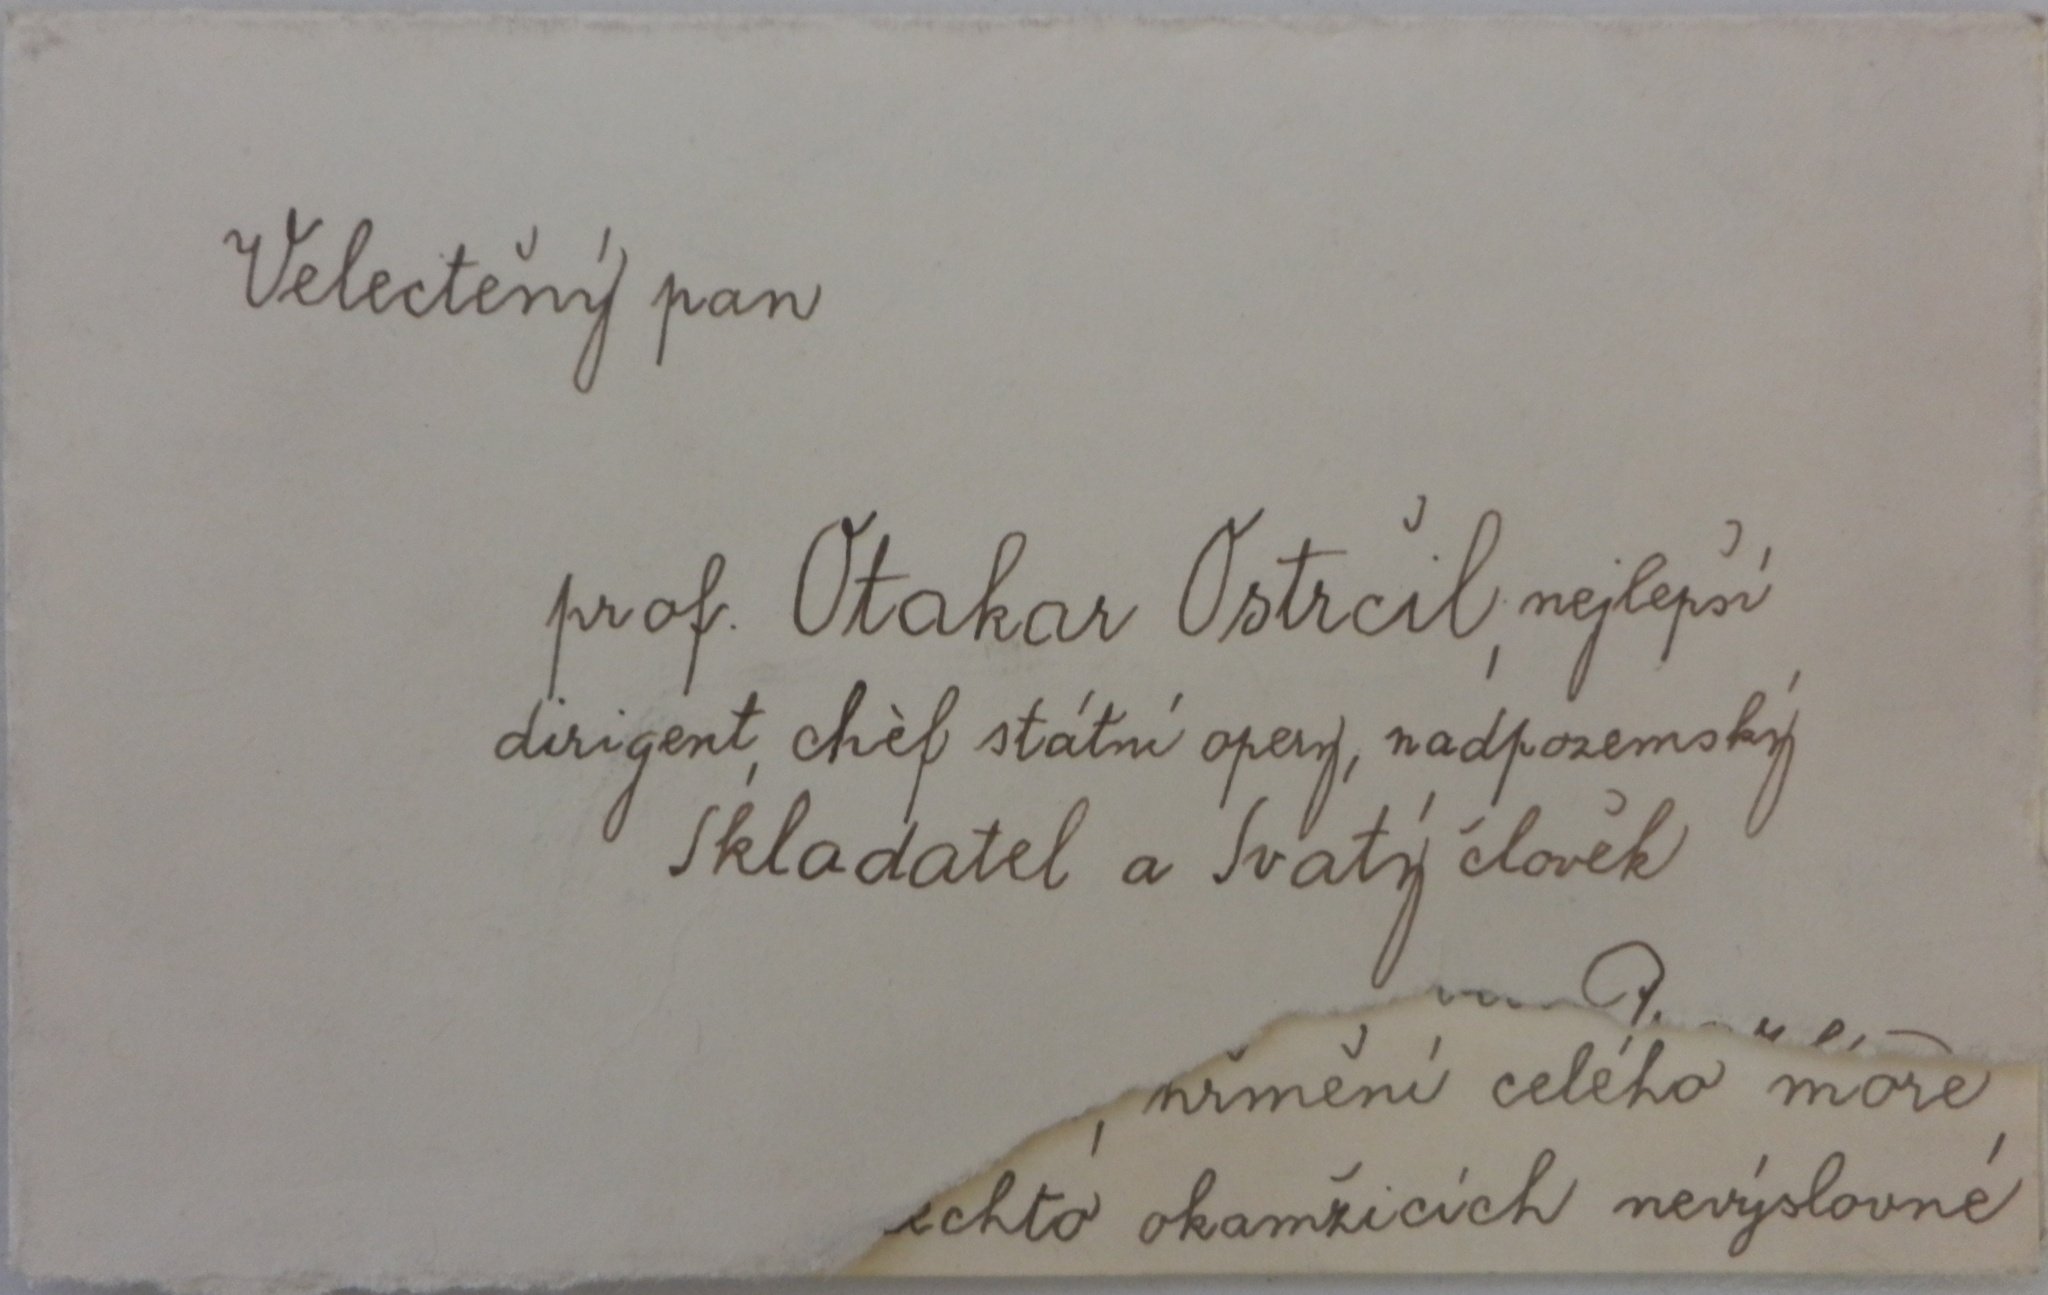 Velectěný pan
prof. Otakar Ostrčil, nejlepší
dirigent, chèf státní opery, nadpozemský
Skladatel a Svatý člověk
celého moře
okamžicích nevýslovné